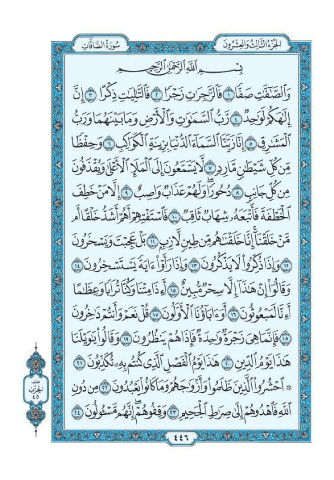 الجزء الثالث والعشرون
سورة الصافات
بِسْمِ اللَّهِ الرَّحْمَٰنِ الرَّحِيمِ
وَالصَّافَّاتِ صَفًّا ١ فَالزَّاجِرَاتِ زَجْرًا ٢ فَالتَّالِيَاتِ ذِكْرًا ٣ إِنَّ
إِلَٰهَكُمْ لَوَاحِدٌ ٤ رَبُّ السَّمَاوَاتِ وَالْأَرْضِ وَمَا بَيْنَهُمَا وَرَبُّ
الْمَشَارِقِ ٥ إِنَّا زَيَّنَّا السَّمَاءَ الدُّنْيَا بِزِينَةٍ الْكَوَاكِبِ ٦ وَحِفْظًا
مِّن كُلِّ شَيْطَانٍ مَّارِدٍ ٧ لَّا يَسَّمَّعُونَ إِلَى الْمَلَإِ الْأَعْلَىٰ وَيُقْذَفُونَ
مِن كُلِّ جَانِبٍ ٨ دُحُورًا وَلَهُمْ عَذَابٌ وَاصِبٌ ٩ إِلَّا مَنْ خَطِفَ
الْخَطْفَةَ فَأَتْبَعَهُ شِهَابٌ ثَاقِبٌ ١٠ فَاسْتَفْتِهِمْ أَهُمْ أَشَدُّ خَلْقًا أَم
مَّنْ خَلَقْنَا إِنَّا خَلَقْنَاهُم مِّن طِينٍ لَّازِبٍ ١١ بَلْ عَجِبْتَ وَيَسْخَرُونَ
١٢ وَإِذَا ذُكِّرُوا لَا يَذْكُرُونَ ١٣ وَإِذَا رَأَوْا آيَةً يَسْتَسْخِرُونَ ١٤
وَقَالُوا إِنْ هَٰذَا إِلَّا سِحْرٌ مُّبِينٌ ١٥ أَإِذَا مِتْنَا وَكُنَّا تُرَابًا وَعِظَامًا
أَإِنَّا لَمَبْعُوثُونَ ١٦ أَوَآبَاؤُنَا الْأَوَّلُونَ ١٧ قُلْ نَعَمْ وَأَنتُمْ دَاخِرُونَ
١٨ فَإِنَّمَا هِيَ زَجْرَةٌ وَاحِدَةٌ فَإِذَا هُمْ يَنظُرُونَ ١٩ وَقَالُوا يَا وَيْلَنَا
هَٰذَا يَوْمُ الدِّينِ ٢٠ هَٰذَا يَوْمُ الْفَصْلِ الَّذِي كُنتُم بِهِ تُكَذِّبُونَ ٢١
۞ احْشُرُوا الَّذِينَ ظَلَمُوا وَأَزْوَاجَهُمْ وَمَا كَانُوا يَعْبُدُونَ ٢٢ مِن دُونِ
اللَّهِ فَاهْدُوهُمْ إِلَىٰ صِرَاطِ الْجَحِيمِ ٢٣ وَقِفُوهُمْ إِنَّهُم مَّسْئُولُونَ ٢٤
٤٤٦